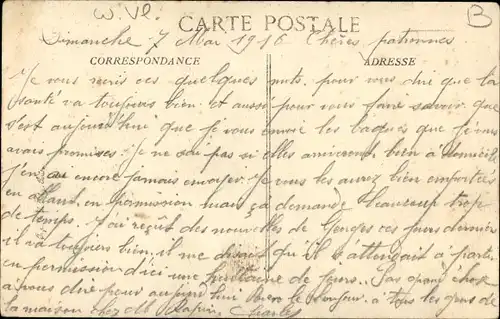 W. Vl.
B
CARTE POSTALE
Dimanche 7 Mai 1916 Chères patronnes
CORRESPONDANCE
ADRESSE
Je vous mets ces quelques mots pour vous dire que la
santé va toujours bien et aussi pour vous faire savoir que
c'est aujourd'hui que je vous envoie les bagues que je vous
avais promises. Je ne sai pas si elles arriveront bien à domicile
j'en ai encore jamais envoyer. Je vous les aurez bien emportées
en allant en permission mais ça demande beaucoup trop
de temps. J'ai reçut des nouvelles de Georges ces jours dernier
il va toujours bien, il me disait qu'il s'attendait à partir
en permission d'ici une huitaine de jours. Pas grand chose
à vous dire pour aujourd'hui bien le bonjour à tous les gens de
la maison chez M Charles